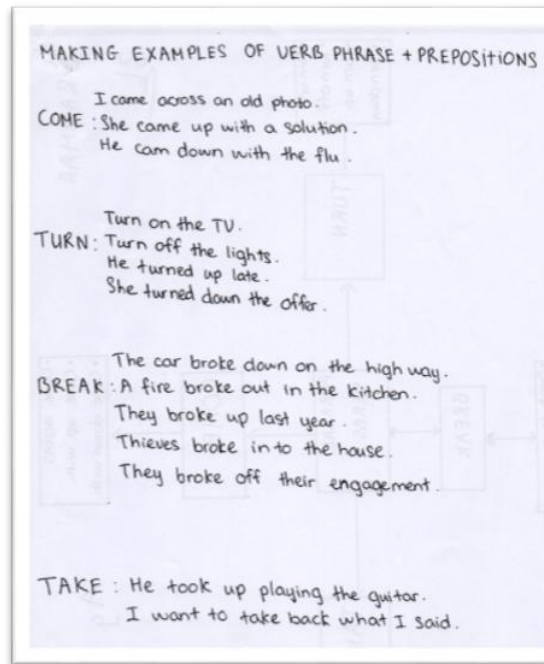 MAKING EXAMPLES OF VERB PHRASE + PREPOSITIONS
I came across an old photo.
COME : She came up with a solution.
He cam down with the flu.
Turn on the TV.
TURN : Turn off the lights.
He turned up late.
She turned down the offer.
The car broke down on the high way.
BREAK : A fire broke out in the kitchen.
They broke up last year.
Thieves broke in to the house.
They broke off their engagement.
TAKE : He took up playing the guitar.
I want to take back what I said.